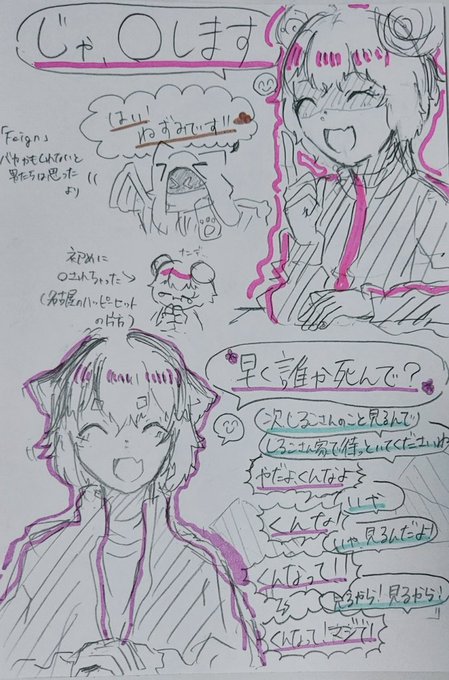 じゃ、〇します
はい!
ねおみでぃす!!
「Feign」
バケかもしれないと
男たちは思った
より
初めに
〇されちゃった
(名古屋のハッピーヒット
の片方)
ナンデ
早く誰か死んで?
次しるこさんのこと見るんで
しるこさん家で待っといてくださいね
やだよくんなよ
いや
くんな!
いや、見るんだよ!
くんなって!!
見るから!見るから!!
くんなって!マジで!